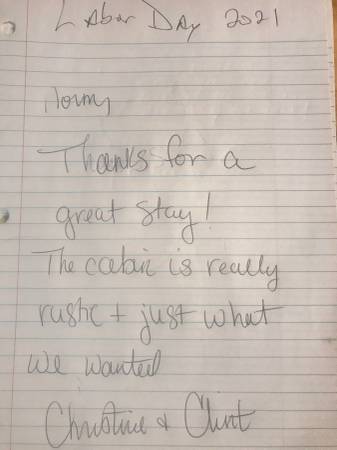 Labor Day 2021
Thanks for a
great stay!
The cabin is really
rustic + just what
we wanted
Christine & Clint